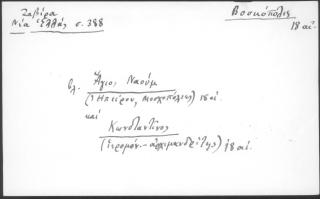 Ζαβίρα
Νέα Ἑλλάς σ. 388
Βοσκόπολις
18 αἰ.
βλ. Ἅγιος Ναούμ
(Ἠπείρου, Μοσχοπόλεως) 18 αἰ.
καὶ
Κωνσταντῖνος
(ἱερομόν. - ἀρχιμανδρίτης) 18 αἰ.